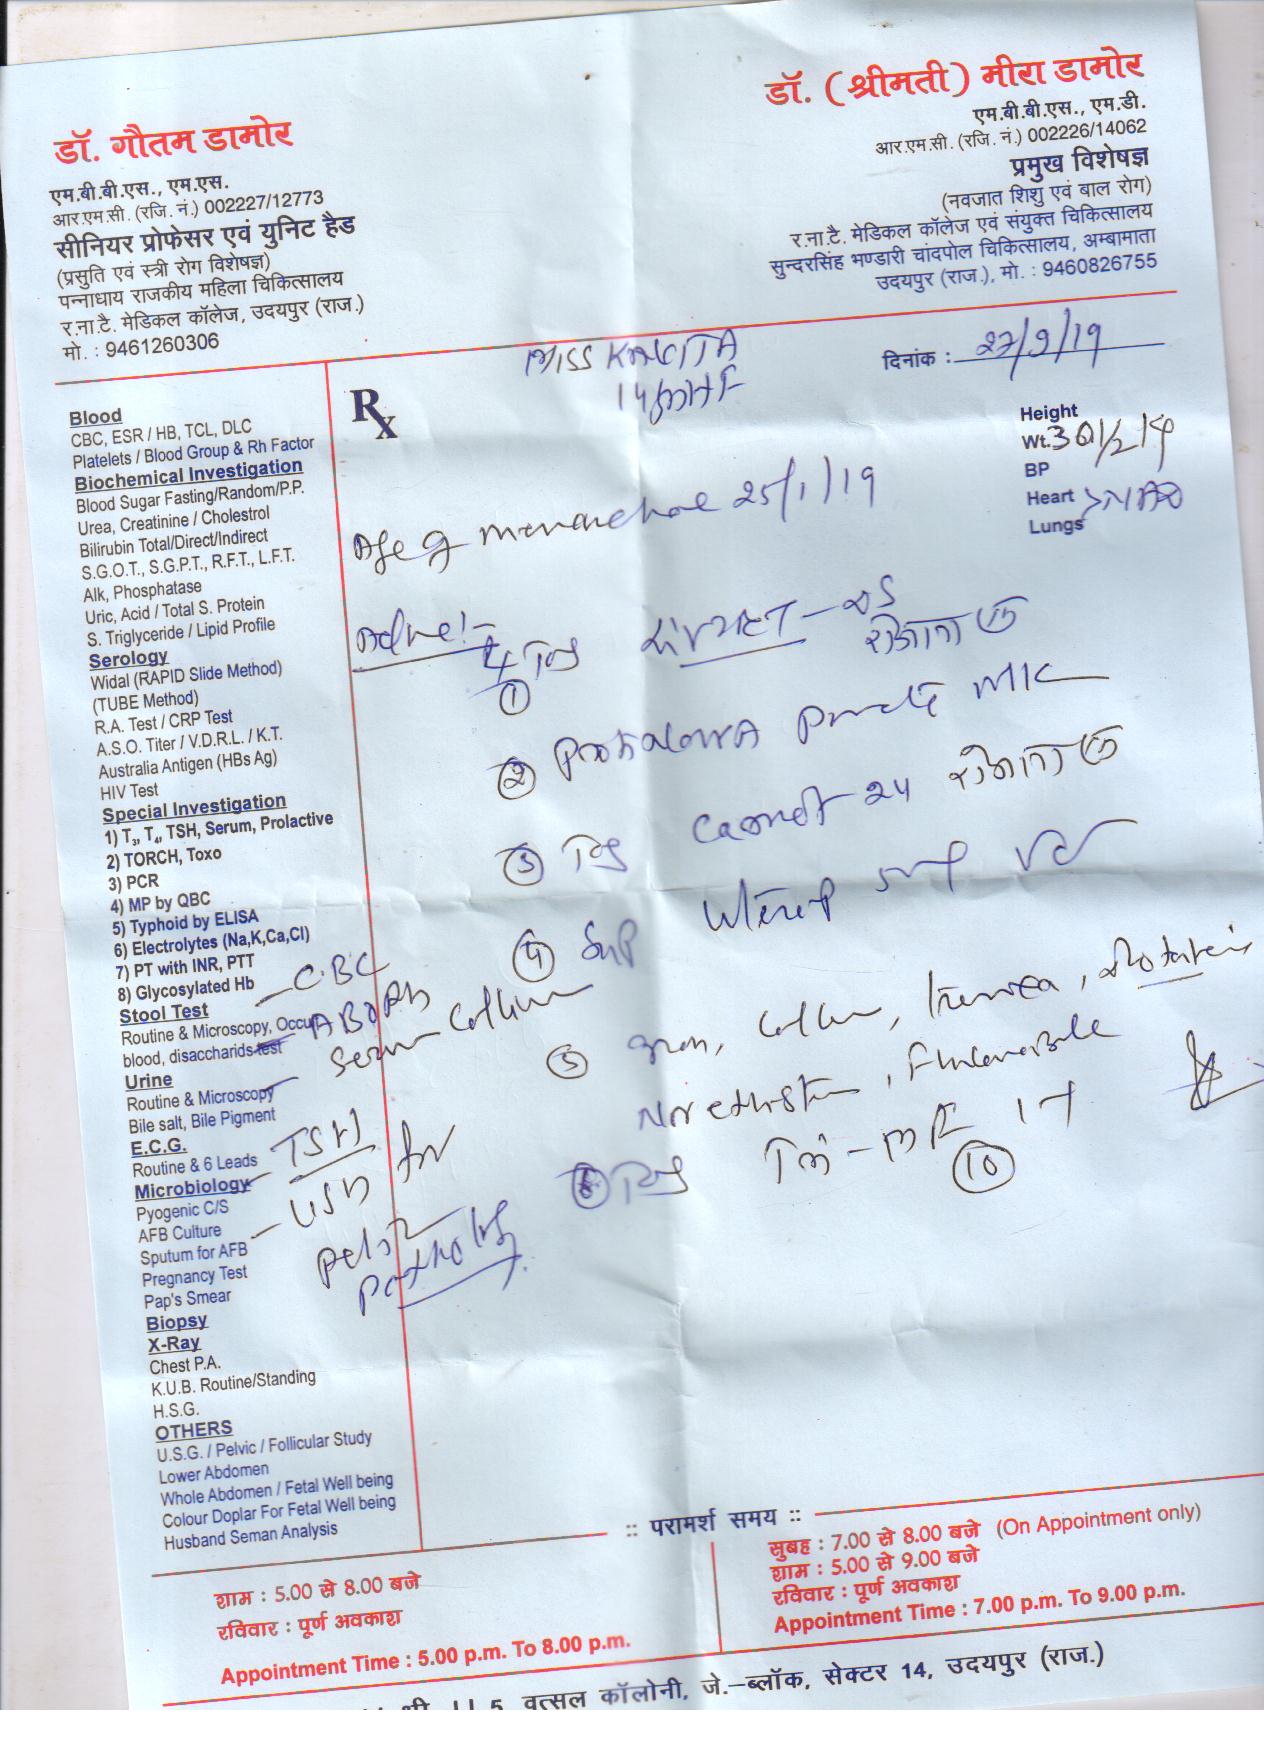 डॉ. गौतम डामोर
एम.बी.बी.एस., एम.एस.
आर.एम.सी. (रजि. नं.) 002227/12773
सीनियर प्रोफेसर एवं युनिट हैड
(प्रसुति एवं स्त्री रोग विशेषज्ञ)
पन्नाधाय राजकीय महिला चिकित्सालय
र.ना.टै. मेडिकल कॉलेज, उदयपुर (राज.)
मो. : 9461260306
डॉ. (श्रीमती) मीरा डामोर
एम.बी.बी.एस., एम.डी.
आर.एम.सी. (रजि. नं.) 002226/14062
प्रमुख विशेषज्ञ
(नवजात शिशु एवं बाल रोग)
र.ना.टै. मेडिकल कॉलेज एवं संयुक्त चिकित्सालय
सुन्दरसिंह भण्डारी चांदपोल चिकित्सालय, अम्बामाता
उदयपुर (राज.), मो. : 9460826755
MISS
दिनांक : 27/9/19
Rx
Height
Wt.
BP
Heart
Lungs
Age of menarchae 25/1/19
Advise:-
①
रोजाना ①
②
③ Tab 24 रोजाना ①
④ Syp
⑤ Iron,
⑥ Tab
⑩
Blood
CBC, ESR / HB, TCL, DLC
Platelets / Blood Group & Rh Factor
Biochemical Investigation
Blood Sugar Fasting/Random/P.P.
Urea, Creatinine / Cholestrol
Bilirubin Total/Direct/Indirect
S.G.O.T., S.G.P.T., R.F.T., L.F.T.
Alk, Phosphatase
Uric, Acid / Total S. Protein
S. Triglyceride / Lipid Profile
Serology
Widal (RAPID Slide Method)
(TUBE Method)
R.A. Test / CRP Test
A.S.O. Titer / V.D.R.L. / K.T.
Australia Antigen (HBs Ag)
HIV Test
Special Investigation
1) T₃, T₄, TSH, Serum, Prolactive
2) TORCH, Toxo
3) PCR
4) MP by QBC
5) Typhoid by ELISA
6) Electrolytes (Na,K,Ca,Cl)
7) PT with INR, PTT
8) Glycosylated Hb
Stool Test
Routine & Microscopy, Occu
blood, disaccharids test
Urine
Routine & Microscopy
Bile salt, Bile Pigment
E.C.G.
Routine & 6 Leads
Microbiology
Pyogenic C/S
AFB Culture
Sputum for AFB
Pregnancy Test
Pap's Smear
Biopsy
X-Ray
Chest P.A.
K.U.B. Routine/Standing
H.S.G.
OTHERS
U.S.G. / Pelvic / Follicular Study
Lower Abdomen
Whole Abdomen / Fetal Well being
Colour Doplar For Fetal Well being
Husband Seman Analysis
- CBC
- ABO Rh
- Serum Calcium
- TSH
- USG for
pelvic
pathology
:: परामर्श समय ::
शाम : 5.00 से 8.00 बजे
रविवार : पूर्ण अवकाश
Appointment Time : 5.00 p.m. To 8.00 p.m.
सुबह : 7.00 से 8.00 बजे (On Appointment only)
शाम : 5.00 से 9.00 बजे
रविवार : पूर्ण अवकाश
Appointment Time : 7.00 p.m. To 9.00 p.m.
5, वत्सल कॉलोनी, जे.-ब्लॉक, सेक्टर 14, उदयपुर (राज.)